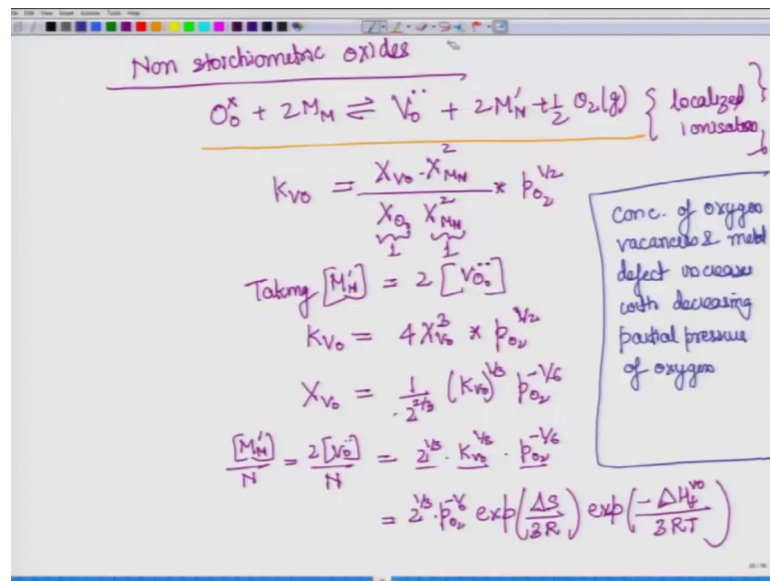 Non stoichiometric oxides
O_o^x + 2M_M ⇌ V_o^¨ + 2M_M' + 1/2 O_2(g) { localized ionisation }
K_Vo = (X_Vo · X_MM^2) / (X_Oo X_MM^2) * p_O2^1/2
1 1
Taking [M_M'] = 2 [V_o^¨]
K_Vo = 4 X_Vo^3 * p_O2^1/2
X_Vo = 1/2^2/3 (K_Vo)^1/3 p_O2^-1/6
[M_M']/N = 2[V_o^¨]/N = 2^1/3 · K_Vo^1/3 · p_O2^-1/6
= 2^1/3 · p_O2^-1/6 exp(ΔS/3R) exp(-ΔH_f^vo/3RT)
conc. of oxygen
vacancies & metal
defect increases
with decreasing
partial pressure
of oxygen